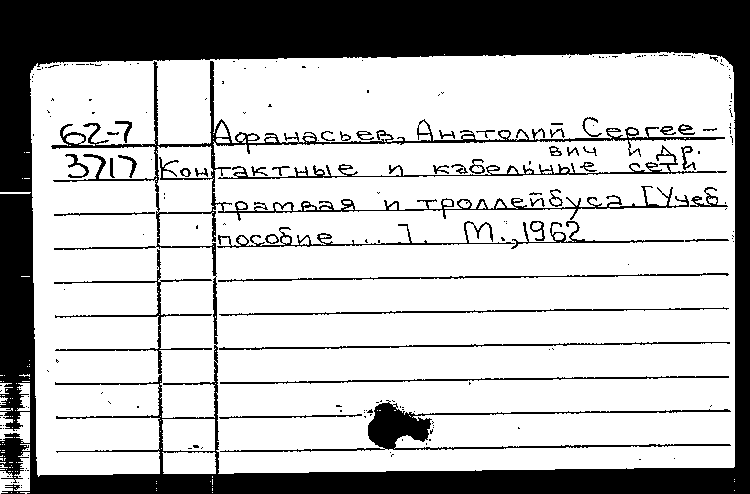 62-7 Афанасьев, Анатолий Сергее-
вич и др.
3717 Контактные и кабельные сети
трамвая и троллейбуса. [Учеб.
пособие ... ]. М., 1962